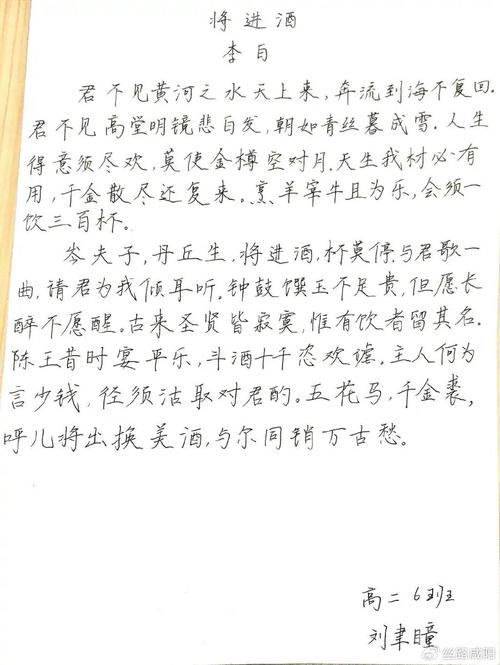 将进酒
李白
君不见黄河之水天上来，奔流到海不复回.
君不见高堂明镜悲白发，朝如青丝暮成雪.人生
得意须尽欢，莫使金樽空对月.天生我材必有
用，千金散尽还复来.烹羊宰牛且为乐，会须一
饮三百杯。
岑夫子，丹丘生，将进酒，杯莫停.与君歌一
曲，请君为我倾耳听.钟鼓馔玉不足贵，但愿长
醉不愿醒。古来圣贤皆寂寞，惟有饮者留其名.
陈王昔时宴平乐，斗酒十千恣欢谑.主人何为
言少钱，径须沽取对君酌。五花马，千金裘，
呼儿将出换美酒，与尔同销万古愁。
高二6班
刘聿瞳
@丝路咸阳